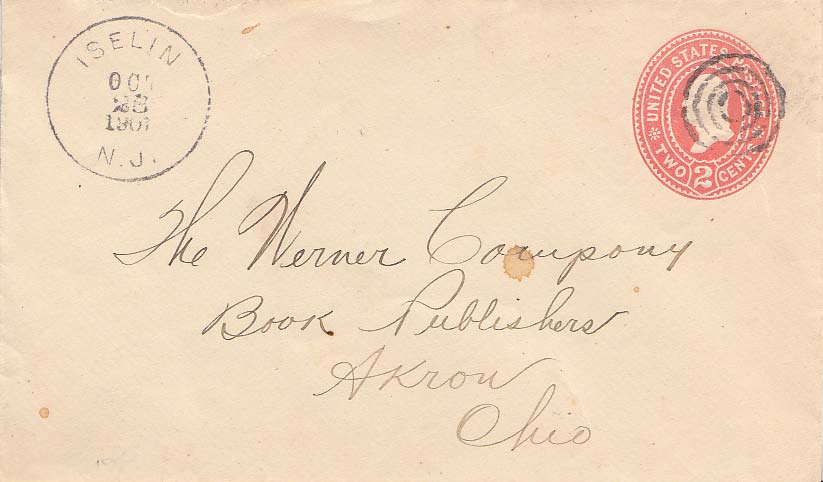 ISELIN
OCT
28
1901
N.J.
UNITED STATES POSTAGE
TWO 2 CENTS
The Werner Company
Book Publishers
Akron
Ohio